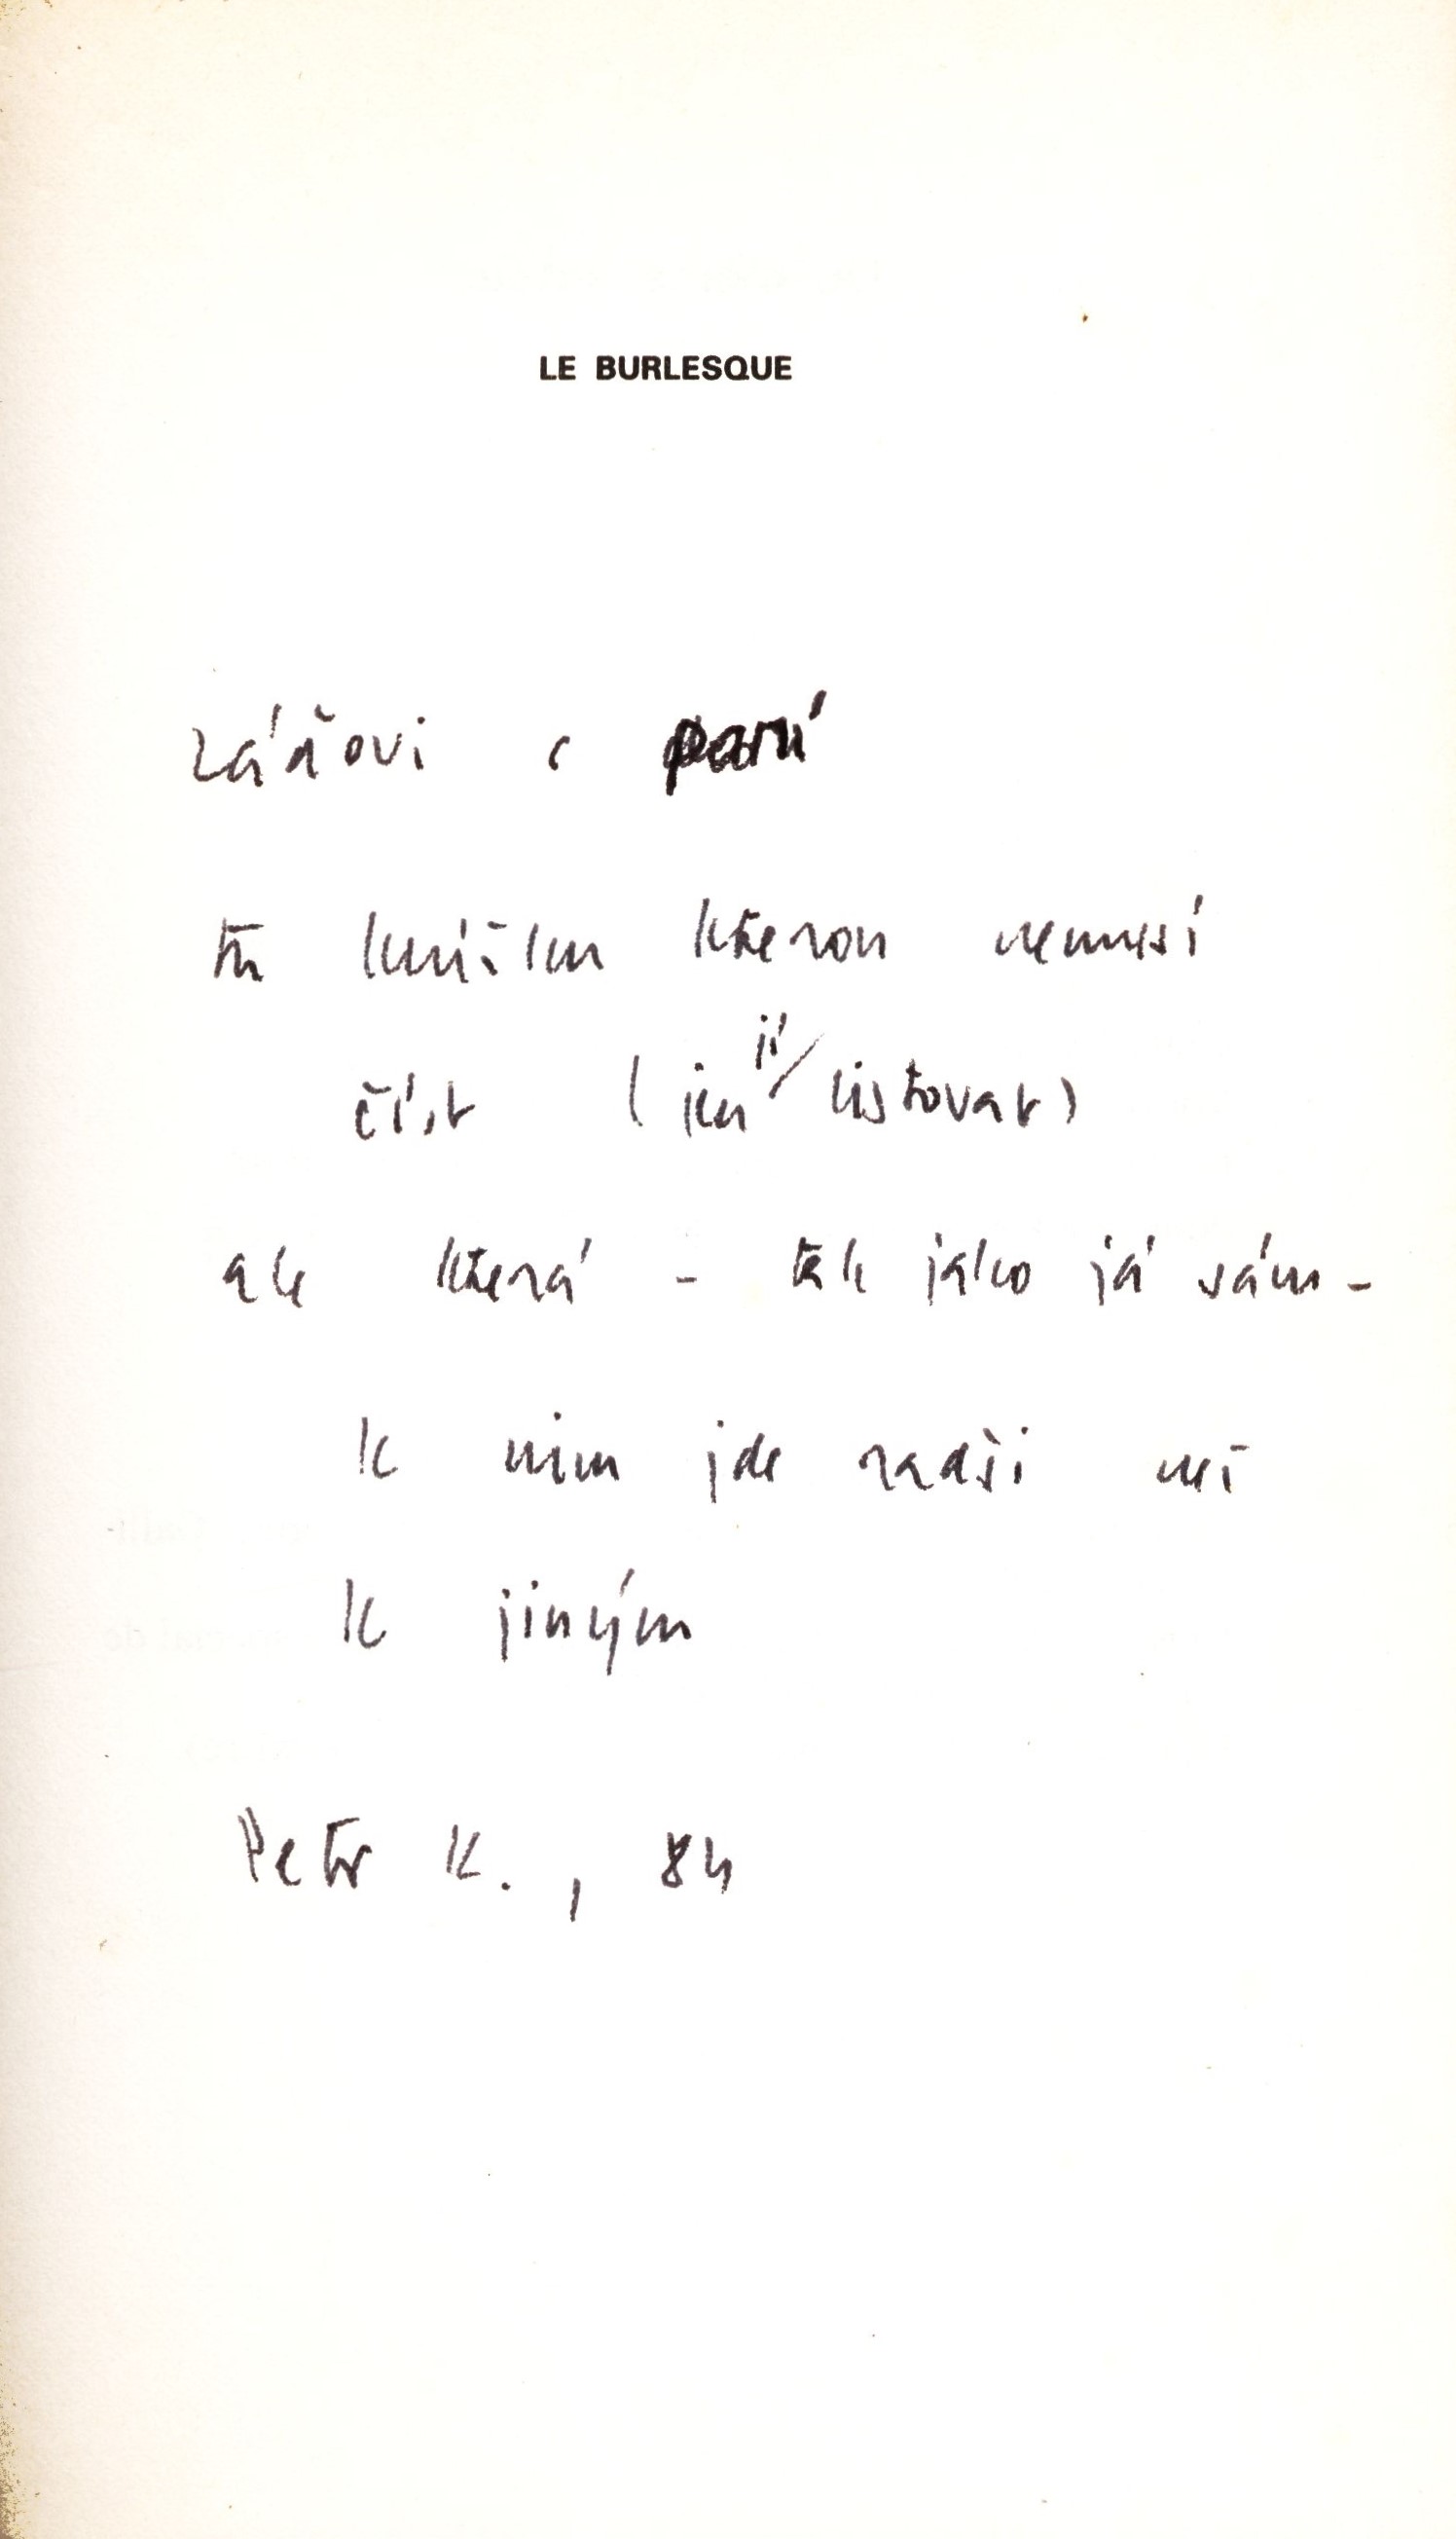 LE BURLESQUE
paní
tu knížku kterou nemusí
číst (jen jí listovat)
ale která - tak jako já sám -
k nim jde radši než
k jiným
Petr K., 84